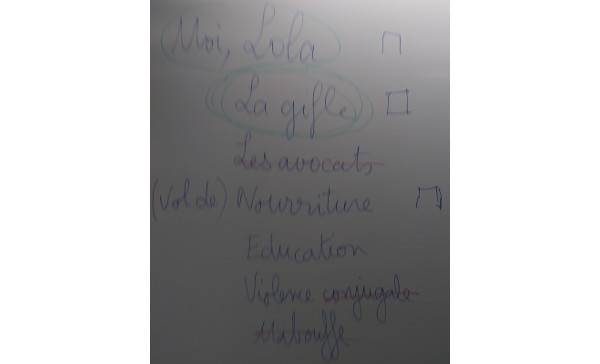 Moi, Lola
La gifle
Les avocats
(Vol de) Nourriture
Education
Violence conjugale
Malbouffe